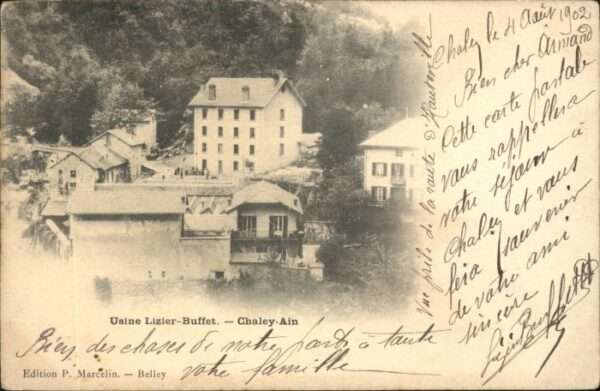 Chaley le 4 Août 1902
Bien cher Armand
Cette carte postale
vous rappellera
votre séjour à
Chaley et vous
fera souvenir
de votre ami
sincère
Vue prise de la route d'Hauteville
Usine Lizier-Buffet. — Chaley-Ain
Bien des choses de votre part à toute
votre famille
Edition P. Marcelin. — Belley